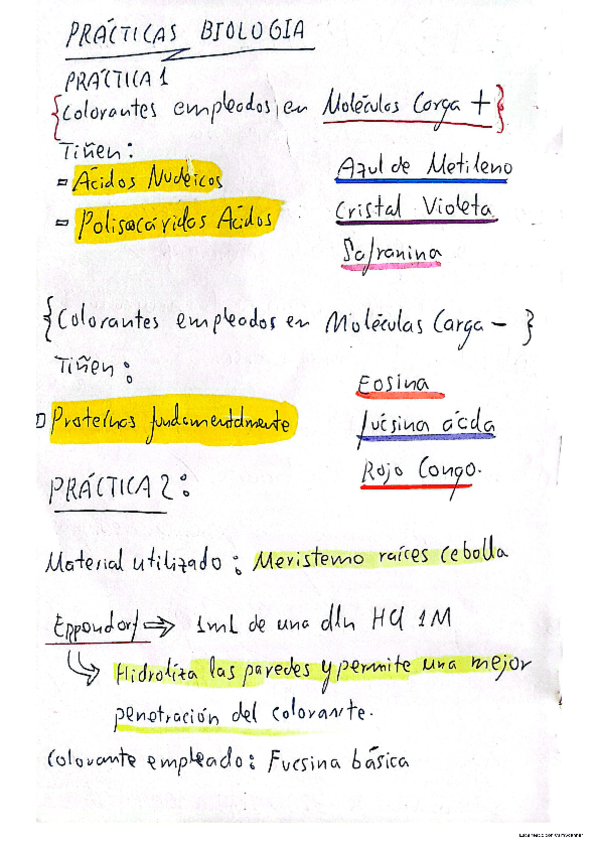 PRÁCTICAS BIOLOGIA
PRÁCTICA 1
{Colorantes empleados en Moléculas Carga +}
Tiñen:
Ácidos Nucleicos
Azul de Metileno
- Polisacáridos Ácidos
Cristal Violeta
Safranina
{Colorantes empleados en Moléculas Carga - }
Tiñen:
Eosina
Proteínas fundamentalmente
fucsina ácda
Rojo Congo.
PRÁCTICA 2:
Material utilizado: Meristemo raíces cebolla
Eppondorf ⇒ 1mL de una dln HCl 1M
Hidroliza las paredes y permite una mejor
penetración del colorante.
Colorante empleado: Fucsina básica